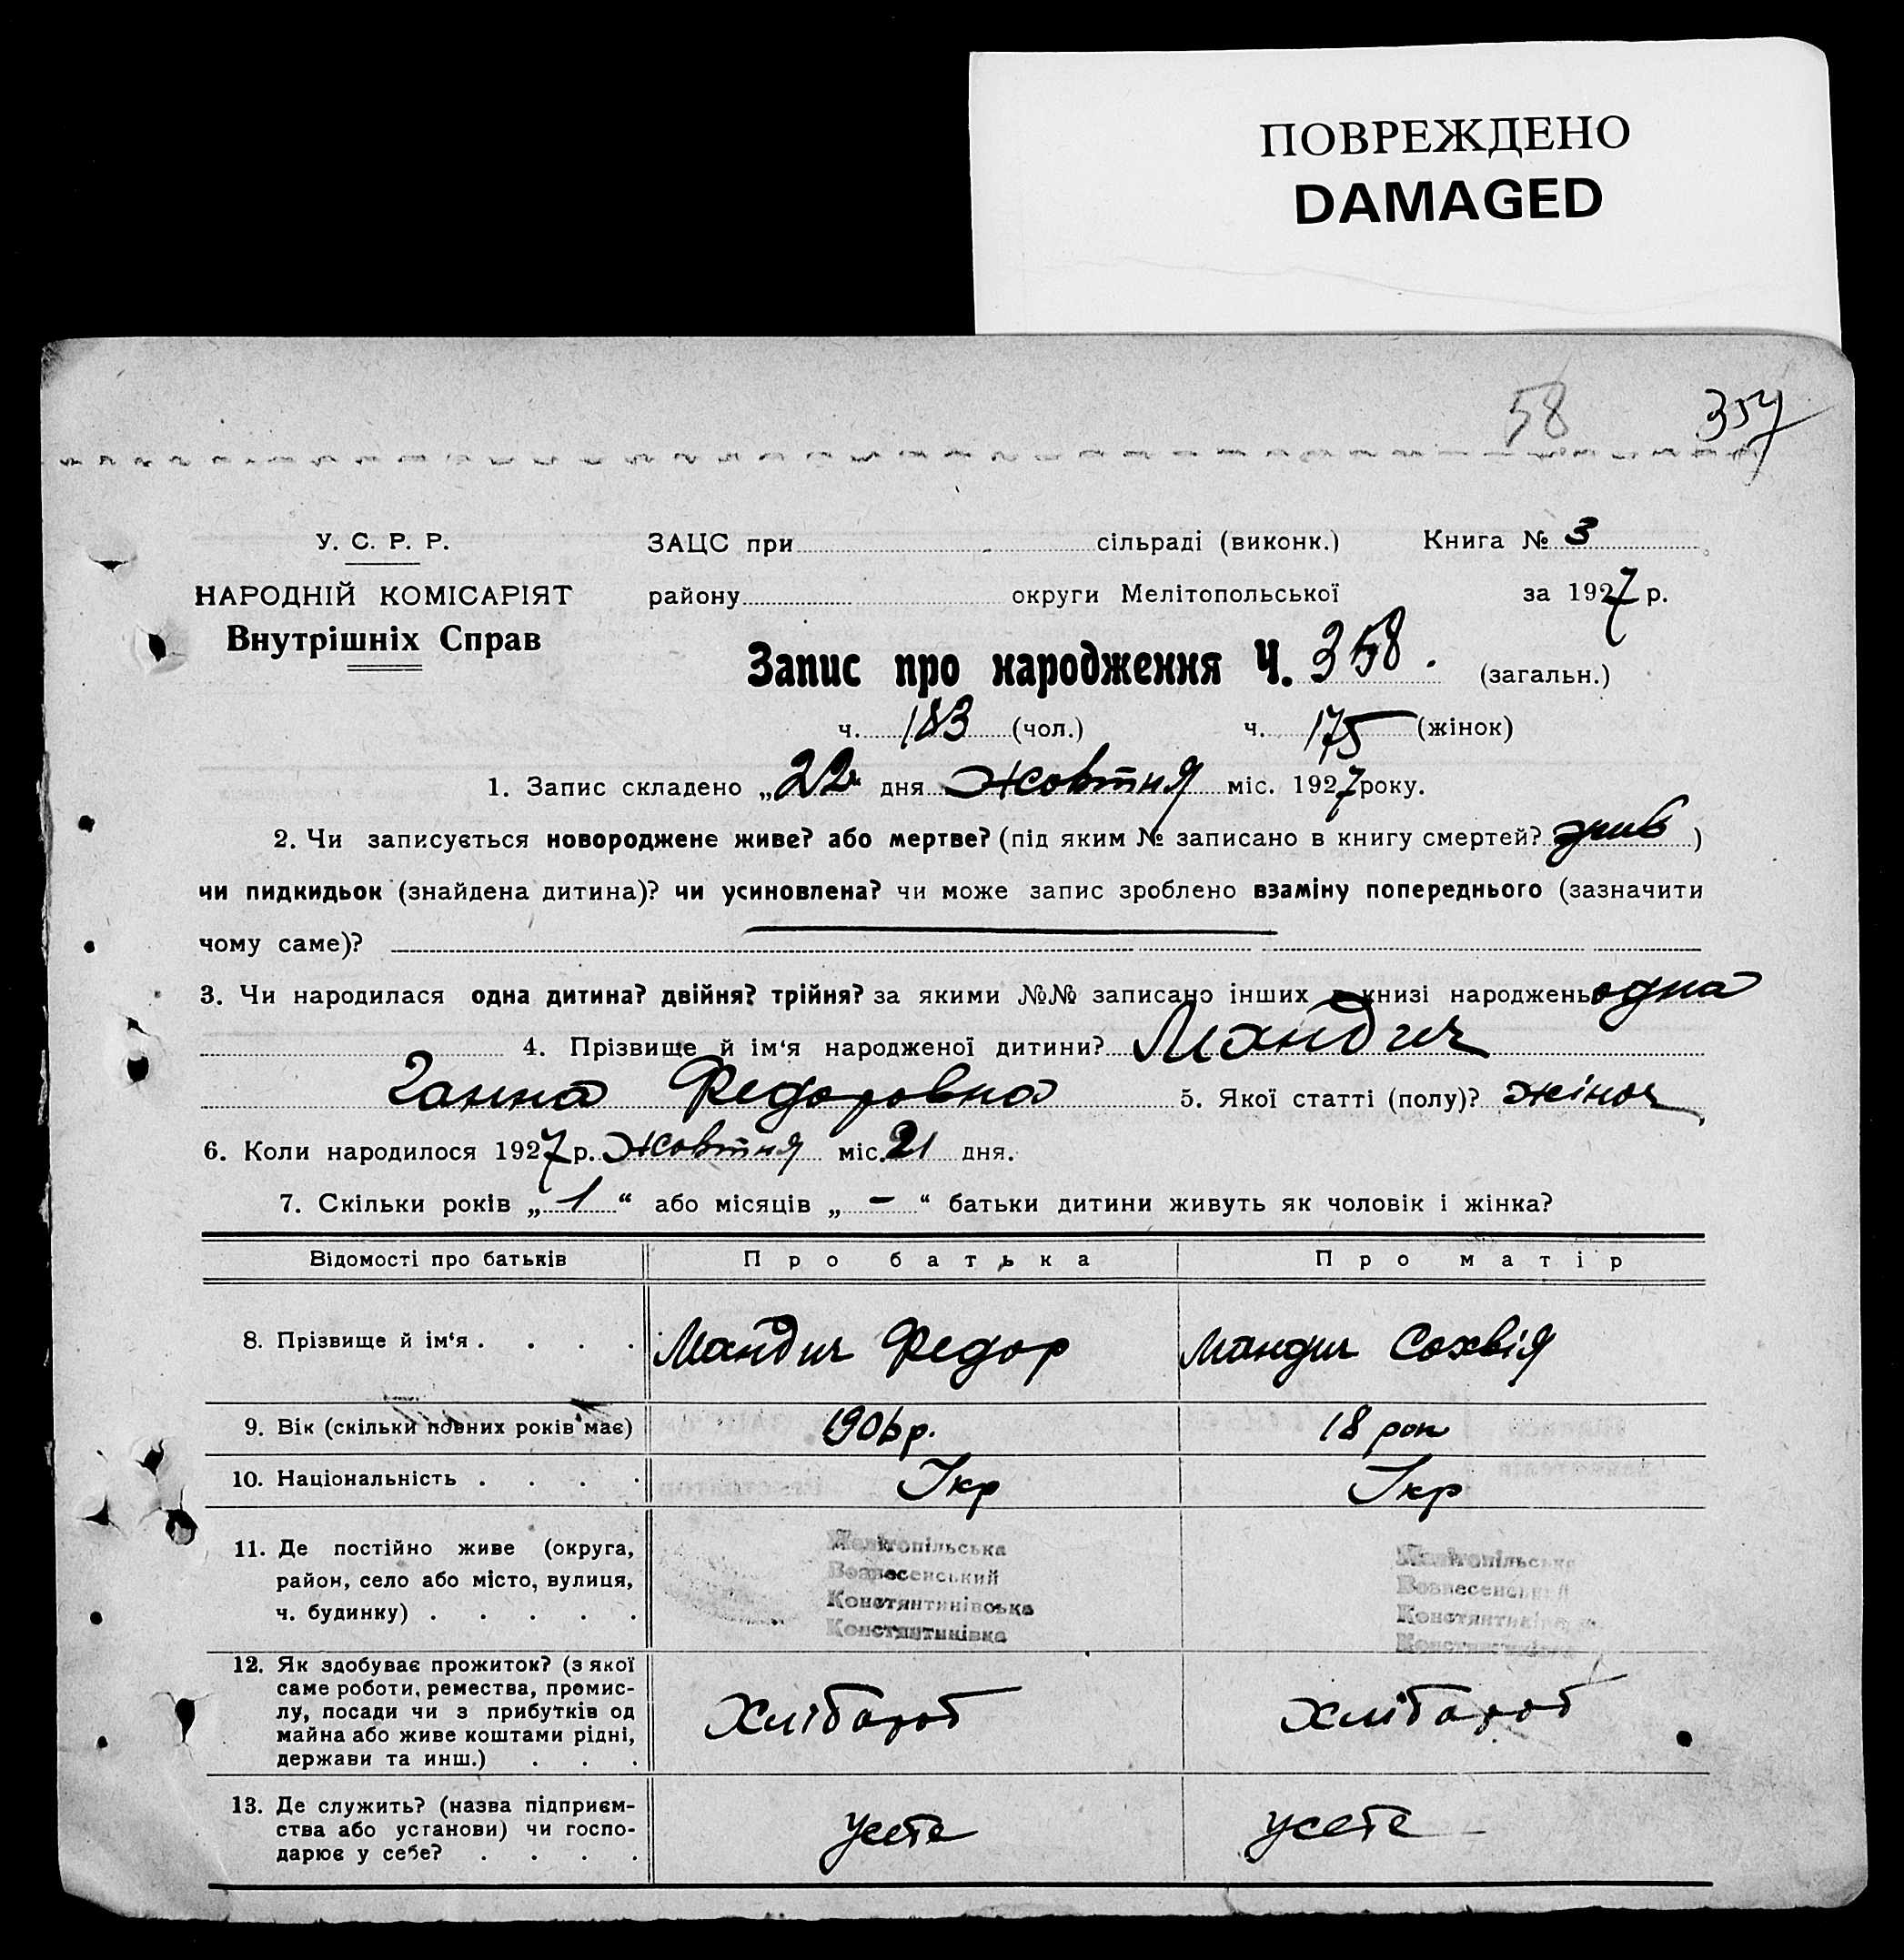 ПОВРЕЖДЕНО
DAMAGED
58 357
У. С. Р. Р. ЗАЦС при сільраді (виконк.) Книга № 3
НАРОДНІЙ КОМІСАРІЯТ району округи Мелітопольської за 1927 р.
Внутрішніх Справ
Запис про народження Ч. 358. (загальн.)
ч. 183 (чол.) ч. 175 (жінок)
1. Запис складено „22" дня Жовтня міс. 1927 року.
2. Чи записується новороджене живе? або мертве? (під яким № записано в книгу смертей? жив )
чи пидкидьок (знайдена дитина)? чи усиновлена? чи може запис зроблено взаміну попереднього (зазначити
чому саме)?
3. Чи народилася одна дитина? двійня? трійня? за якими №№ записано інших в книзі народжень одна
4. Прізвище й ім‘я народженої дитини? Мандич
Ганна Федоровна 5. Якої статті (полу)? жіноч
6. Коли народилося 1927 р. Жовтня міс. 21 дня.
7. Скільки років „ 1 “ або місяців „ – “ батьки дитини живуть як чоловік і жінка?
Відомості про батьків Про батька Про матір
8. Прізвище й ім‘я . . . . Мандич Федор Мандич Сохвія
9. Вік (скільки повних років має) 1906 р. 18 рок
10. Національність . . . . Укр Укр
11. Де постійно живе (округа, Мелітопільська Мелітопільська
район, село або місто, вулиця, Вознесенський Вознесенський
ч. будинку) . . . . . Констянтинівська
Констянтинівка
12. Як здобуває прожиток? (з якої
саме роботи, ремества, промис-
лу, посади чи з прибутків од Хлібороб Хлібороб
майна або живе коштами рідні,
держави та инш.) . . .
13. Де служить? (назва підприєм-
ства або установи) чи госпо- усебе усебе
дарює у себе? . . . .